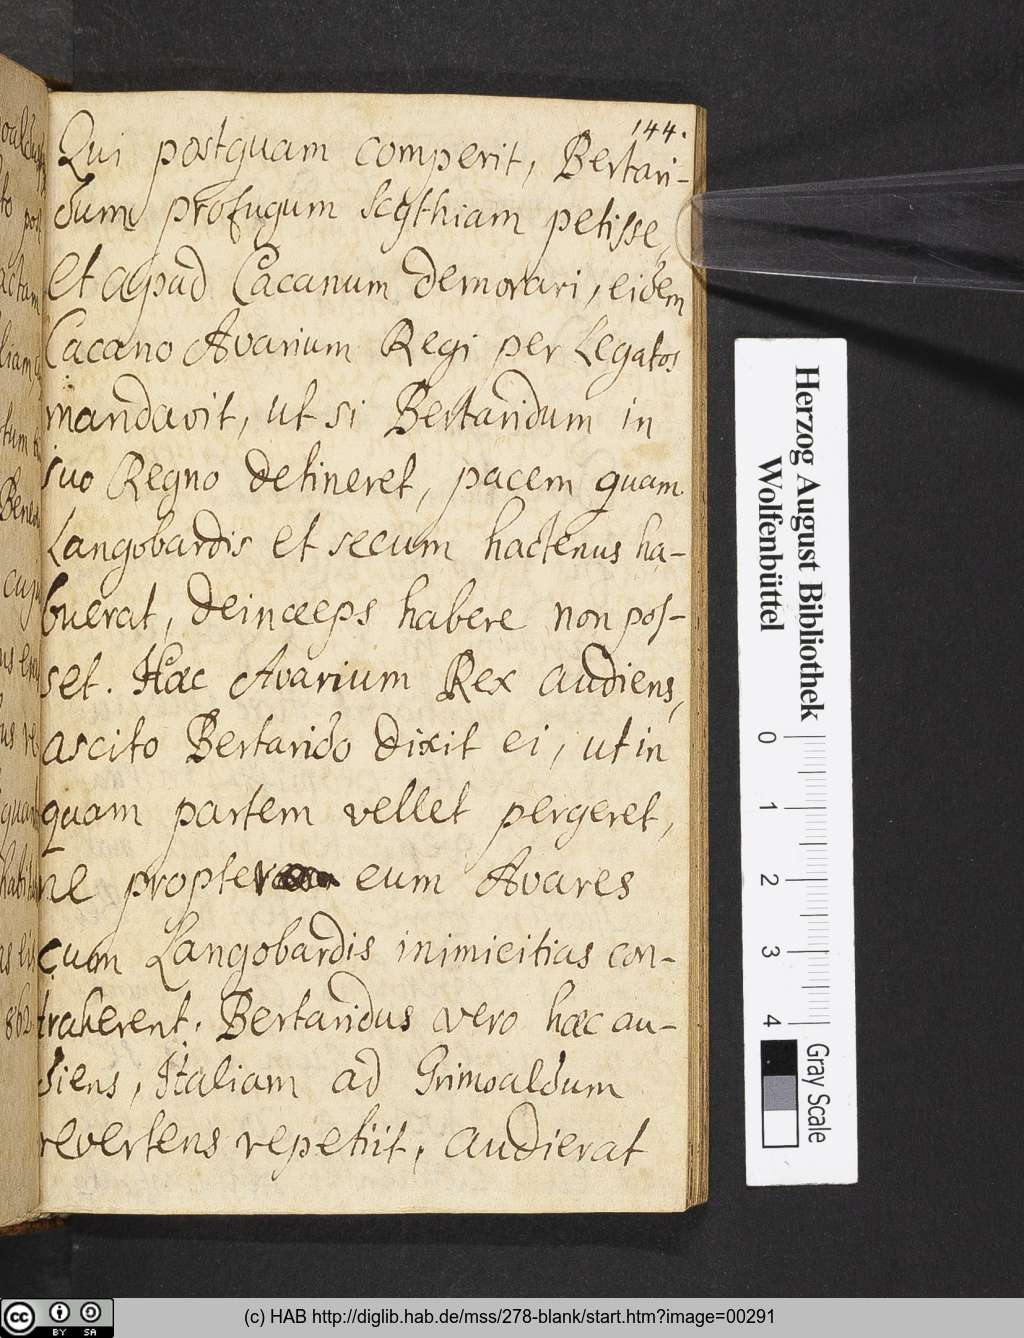 144.
Qui postquam comperit, Bertari-
dum profugum Scythiam petisse,
et apud Cacanum demorari, eidem
Cacano Avarium Regi per Legatos
mandavit, ut si Bertaridum in
suo Regno detineret, pacem quam
Langobardis et secum hactenus ha-
buerat, deinceps habere non pos-
set. Haec Avarium Rex audiens,
ascito Bertarido dixit ei, ut in
quam partem vellet pergeret,
ne propter eum Avares
cum Langobardis inimicitias con-
traherent. Bertaridus vero haec au-
diens, Italiam ad Grimoaldum
revertens repetiit, audierat
Herzog August Bibliothek
Wolfenbüttel
0 1 2 3 4
Gray Scale
cc BY SA
(c) HAB http://diglib.hab.de/mss/278-blank/start.htm?image=00291